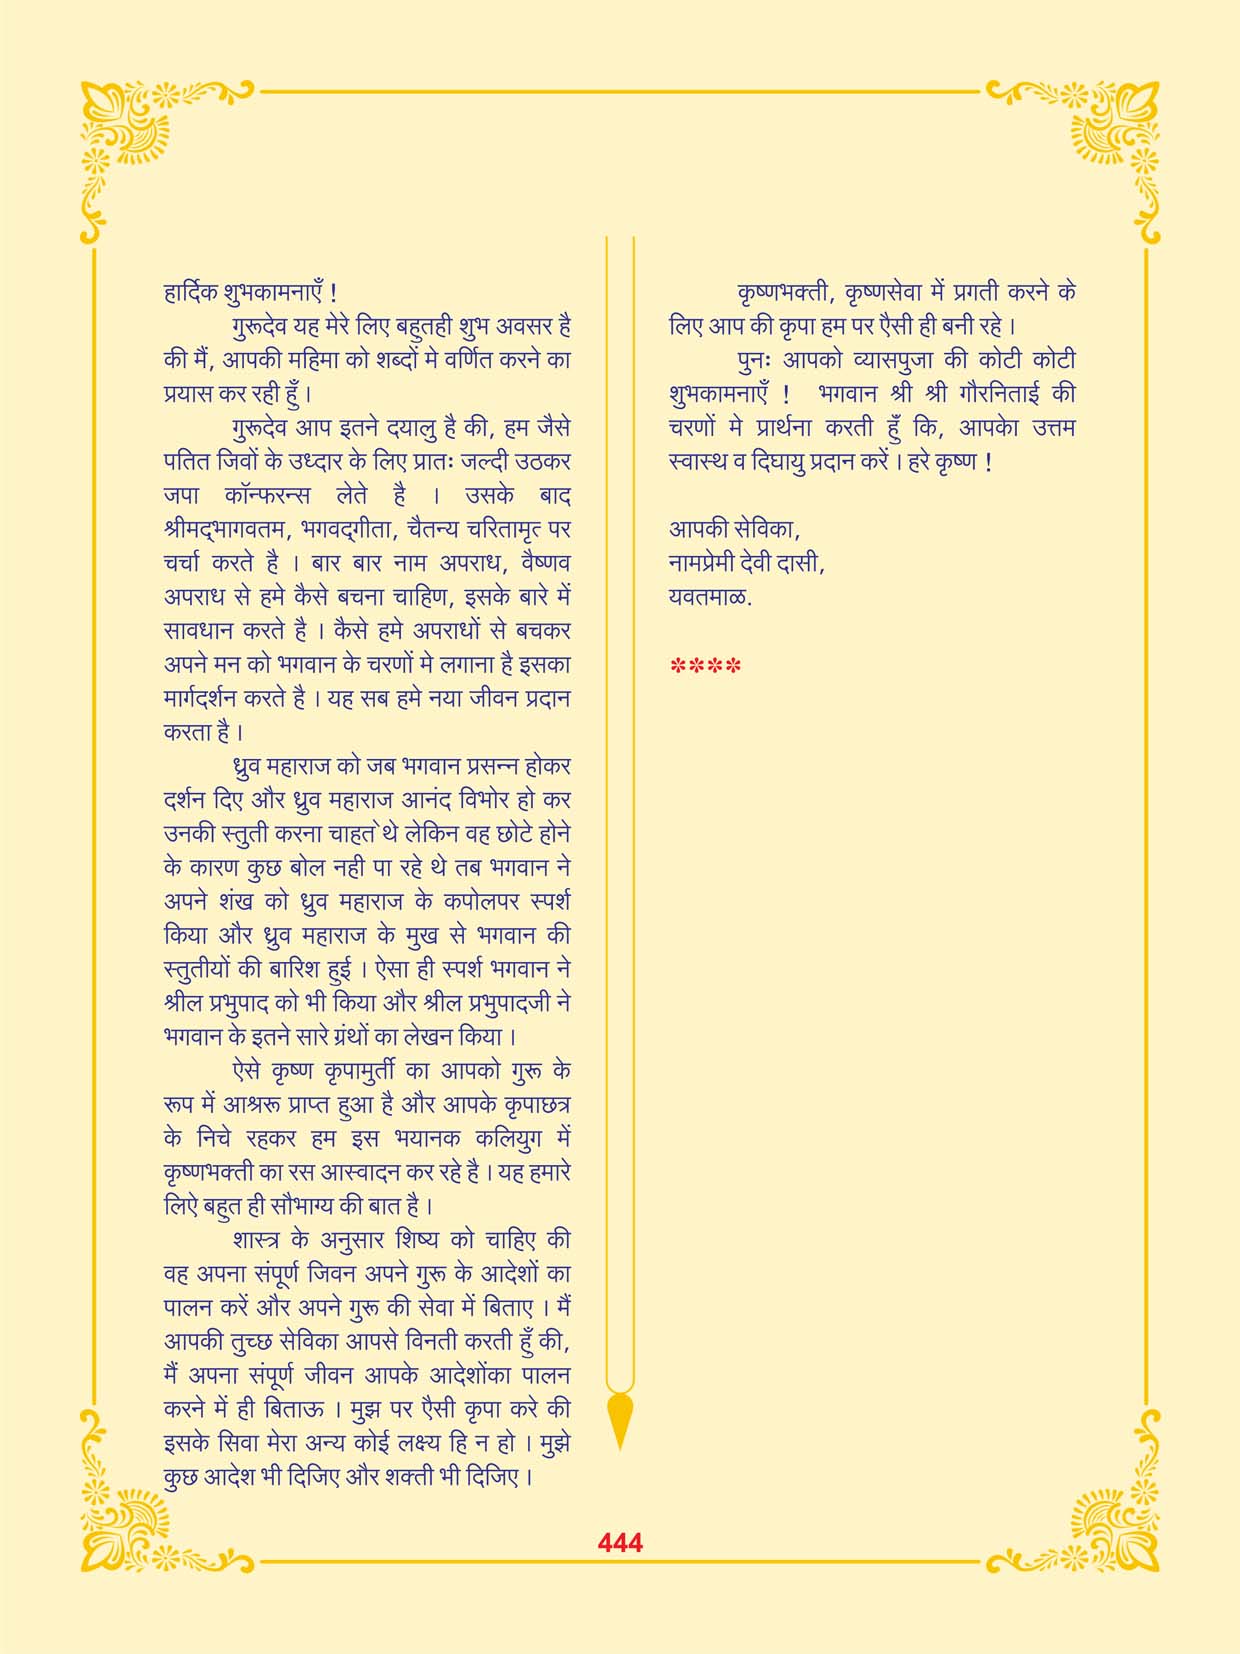 हार्दिक शुभकामनाएँ !
गुरूदेव यह मेरे लिए बहुतही शुभ अवसर है
की मैं, आपकी महिमा को शब्दों मे वर्णित करने का
प्रयास कर रही हूँ ।
गुरूदेव आप इतने दयालु है की, हम जैसे
पतित जिवों के उध्दार के लिए प्रातः जल्दी उठकर
जपा कॉन्फरन्स लेते है । उसके बाद
श्रीमद्‌भागवतम, भगवद्‌गीता, चैतन्य चरितामृत पर
चर्चा करते है । बार बार नाम अपराध, वैष्णव
अपराध से हमे कैसे बचना चाहिण, इसके बारे में
सावधान करते है । कैसे हमे अपराधों से बचकर
अपने मन को भगवान के चरणों मे लगाना है इसका
मार्गदर्शन करते है । यह सब हमे नया जीवन प्रदान
करता है ।
ध्रुव महाराज को जब भगवान प्रसन्न होकर
दर्शन दिए और ध्रुव महाराज आनंद विभोर हो कर
उनकी स्तुती करना चाहते थे लेकिन वह छोटे होने
के कारण कुछ बोल नही पा रहे थे तब भगवान ने
अपने शंख को ध्रुव महाराज के कपोलपर स्पर्श
किया और ध्रुव महाराज के मुख से भगवान की
स्तुतीयों की बारिश हुई । ऐसा ही स्पर्श भगवान ने
श्रील प्रभुपाद को भी किया और श्रील प्रभुपादजी ने
भगवान के इतने सारे ग्रंथों का लेखन किया ।
ऐसे कृष्ण कृपामुर्ती का आपको गुरू के
रूप में आश्ररू प्राप्त हुआ है और आपके कृपाछत्र
के निचे रहकर हम इस भयानक कलियुग में
कृष्णभक्ती का रस आस्वादन कर रहे है । यह हमारे
लिऐ बहुत ही सौभाग्य की बात है ।
शास्त्र के अनुसार शिष्य को चाहिए की
वह अपना संपूर्ण जिवन अपने गुरू के आदेशों का
पालन करें और अपने गुरू की सेवा में बिताए । मैं
आपकी तुच्छ सेविका आपसे विनती करती हुँ की,
मैं अपना संपूर्ण जीवन आपके आदेशोंका पालन
करने में ही बिताऊ । मुझ पर एैसी कृपा करे की
इसके सिवा मेरा अन्य कोई लक्ष्य हि न हो । मुझे
कुछ आदेश भी दिजिए और शक्ती भी दिजिए ।
कृष्णभक्ती, कृष्णसेवा में प्रगती करने के
लिए आप की कृपा हम पर एैसी ही बनी रहे ।
पुनः आपको व्यासपुजा की कोटी कोटी
शुभकामनाएँ ! भगवान श्री श्री गौरनिताई की
चरणों मे प्रार्थना करती हुँ कि, आपको उत्तम
स्वास्थ व दिघायु प्रदान करें । हरे कृष्ण !
आपकी सेविका,
नामप्रेमी देवी दासी,
यवतमाळ.
****
444